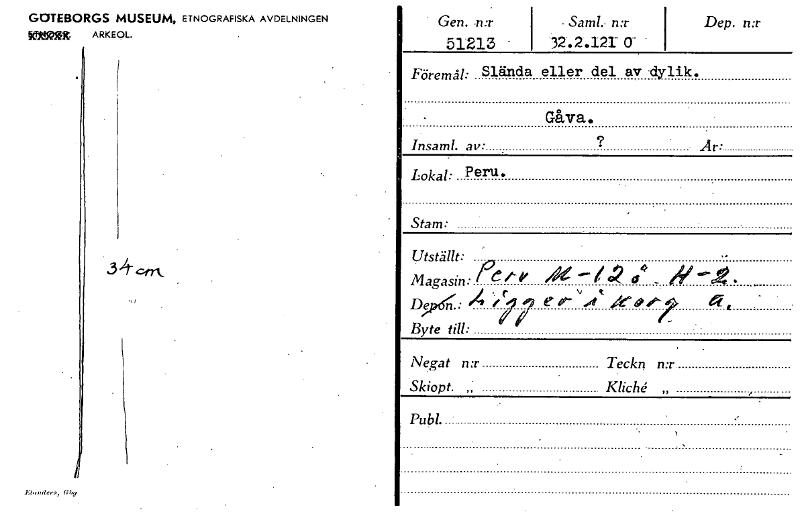 GÖTEBORGS MUSEUM, ETNOGRAFISKA AVDELNINGEN
ARKEOL.
34 cm
Elanders, Gbg
Gen. n:r Saml. n:r Dep. n:r
51213 32.2.121 0
Föremål: Slända eller del av dylik.
Gåva.
Insaml. av: ? År:
Lokal: Peru.
Stam:
Utställt:
Magasin: Peru M-12å H-2.
Depon.: Ligger i korg a.
Byte till:
Negat n:r Teckn n:r
Skiopt. „ Kliché „
Publ.